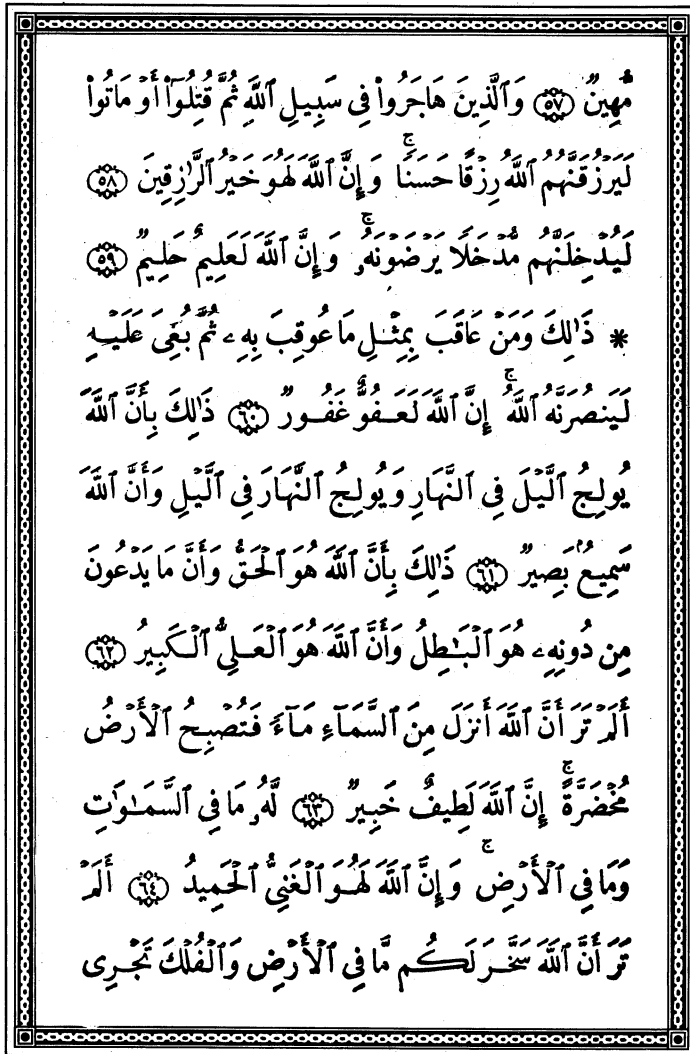 مُّهِينٌ ۝٥٧ وَٱلَّذِينَ هَاجَرُوا۟ فِى سَبِيلِ ٱللَّهِ ثُمَّ قُتِلُوٓا۟ أَوْ مَاتُوا۟
لَيَرْزُقَنَّهُمُ ٱللَّهُ رِزْقًا حَسَنًا ۚ وَإِنَّ ٱللَّهَ لَهُوَ خَيْرُ ٱلرَّٰزِقِينَ ۝٥٨
لَيُدْخِلَنَّهُم مُّدْخَلًا يَرْضَوْنَهُۥ ۚ وَإِنَّ ٱللَّهَ لَعَلِيمٌ حَلِيمٌ ۝٥٩
* ذَٰلِكَ وَمَنْ عَاقَبَ بِمِثْلِ مَا عُوقِبَ بِهِۦ ثُمَّ بُغِىَ عَلَيْهِ
لَيَنصُرَنَّهُ ٱللَّهُ ۚ إِنَّ ٱللَّهَ لَعَفُوٌّ غَفُورٌ ۝٦٠ ذَٰلِكَ بِأَنَّ ٱللَّهَ
يُولِجُ ٱلَّيْلَ فِى ٱلنَّهَارِ وَيُولِجُ ٱلنَّهَارَ فِى ٱلَّيْلِ وَأَنَّ ٱللَّهَ
سَمِيعٌۢ بَصِيرٌ ۝٦١ ذَٰلِكَ بِأَنَّ ٱللَّهَ هُوَ ٱلْحَقُّ وَأَنَّ مَا يَدْعُونَ
مِن دُونِهِۦ هُوَ ٱلْبَٰطِلُ وَأَنَّ ٱللَّهَ هُوَ ٱلْعَلِىُّ ٱلْكَبِيرُ ۝٦٢
أَلَمْ تَرَ أَنَّ ٱللَّهَ أَنزَلَ مِنَ ٱلسَّمَآءِ مَآءً فَتُصْبِحُ ٱلْأَرْضُ
مُخْضَرَّةً ۚ إِنَّ ٱللَّهَ لَطِيفٌ خَبِيرٌ ۝٦٣ لَّهُۥ مَا فِى ٱلسَّمَٰوَٰتِ
وَمَا فِى ٱلْأَرْضِ ۚ وَإِنَّ ٱللَّهَ لَهُوَ ٱلْغَنِىُّ ٱلْحَمِيدُ ۝٦٤ أَلَمْ
تَرَ أَنَّ ٱللَّهَ سَخَّرَ لَكُم مَّا فِى ٱلْأَرْضِ وَٱلْفُلْكَ تَجْرِى